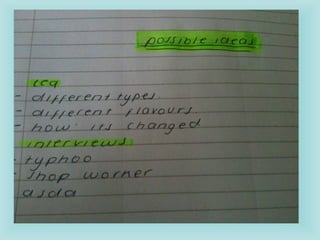 possible ideas
tea
- different types.
- different flavours.
- how its changed
interviews
- typhoo
- shop worker
asda